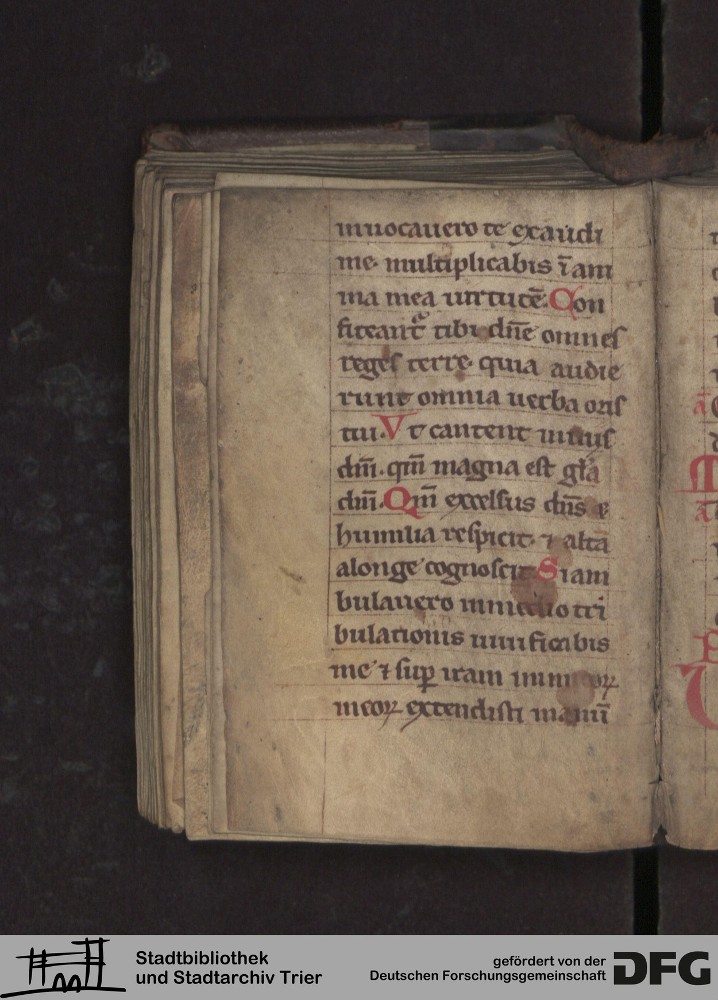 inuocauero te exaudi
me· multiplicabis ĩ am
ma mea uirtutẽ. Con
fiteant᷑ tibi dñe omnes
reges terre· quia audie
runt omnia uerba oris
tui. Vt cantent in uiis
dñi. qm̃ magna est gl̃a
dñi. Qm̃ excelsus dñs ⁊
humilia respicit· ⁊ alta
alonge cognoscit Si am
bulauero in medio tri
bulationis uiuificabis
me ⁊ sup̱ iram inimicoꝝ
meoꝝ extendisti manũ
Stadtbibliothek
und Stadtarchiv Trier
gefördert von der
Deutschen Forschungsgemeinschaft
DFG